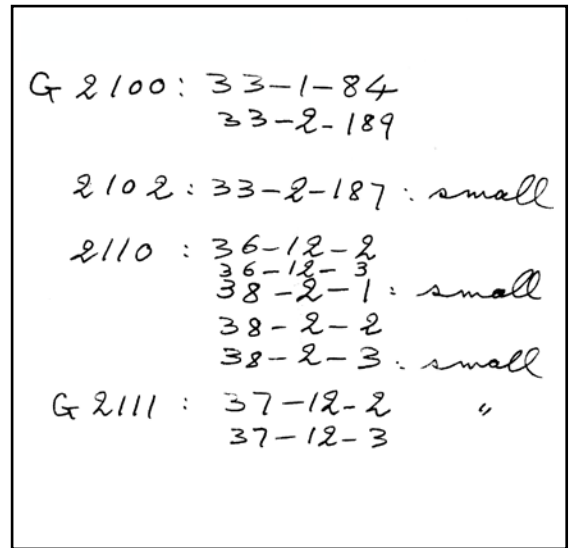 G 2100: 33-1-84
33-2-189
2102: 33-2-187: small
2110: 36-12-2
36-12-3
38-2-1: small
38-2-2
38-2-3: small
G 2111: 37-12-2 "
37-12-3